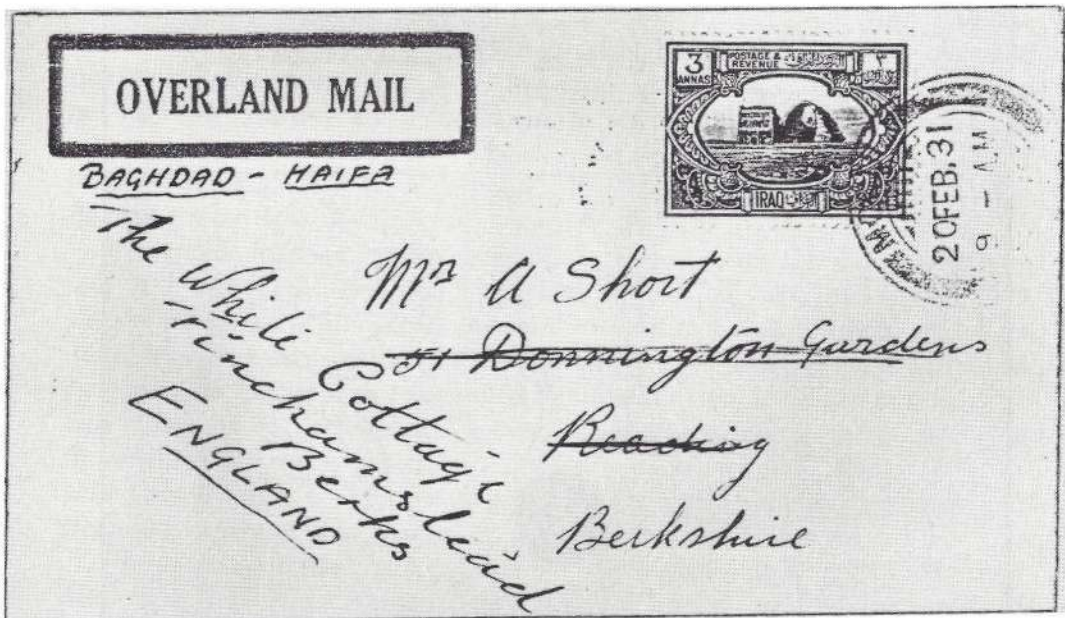 OVERLAND MAIL
BAGHDAD - HAIFA
3
ANNAS
POSTAGE &
REVENUE
٣
IRAQ
20 FEB. 31
9 - AM
Mrs A Short
51 Donnington Gardens
Reading
Berkshire
The White Cottage
Finchamstead
Berks
ENGLAND